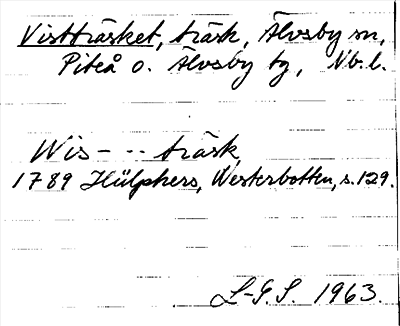 Vistträsket, träsk, Älvsby sn,
Piteå o. Älvsby tg, Nb. l.
Wis- -- träsk,
1789 Hülphers, Westerbotten, s. 129.
L-G.S. 1963.